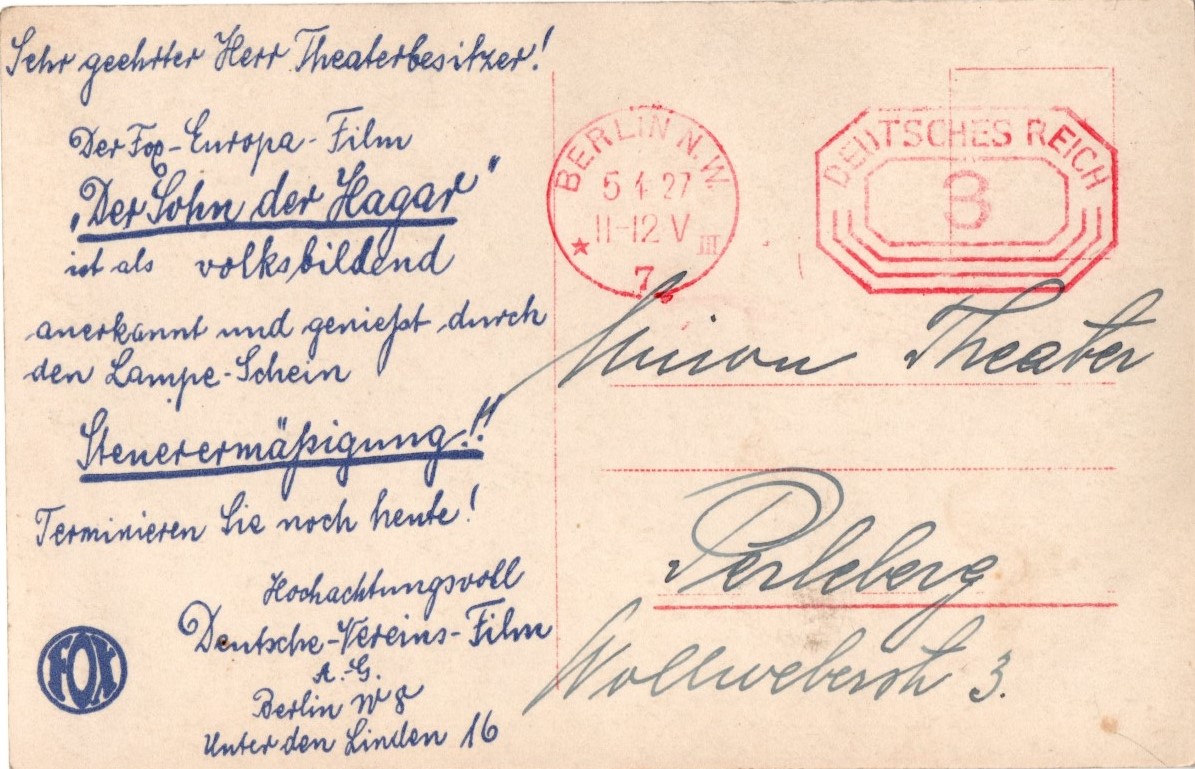 Sehr geehrter Herr Theaterbesitzer!
Der Fox-Europa-Film
„Der Sohn der Hagar"
ist als volksbildend
anerkannt und genießt durch
den Lampe-Schein
Steuerermäßigung!!
Terminieren Sie noch heute!
Hochachtungsvoll
Deutsche-Vereins-Film
A.-G.
Berlin W 8
Unter den Linden 16
FOX
BERLIN N.W.
5 4 27
11-12 V
III
★ 7
DEUTSCHES REICH
3
Union Theater
Perleberg
Wollweberstr 3.